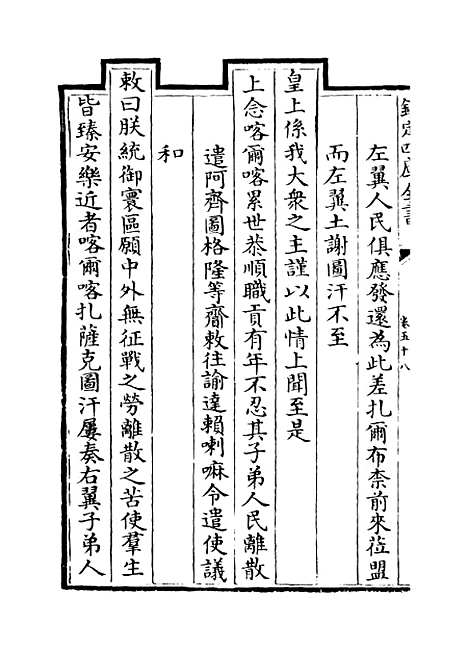 欽定四庫全書
卷五十八
左翼人民俱應發還為此差扎爾布柰前來莅盟
而左翼土謝圖汗不至
皇上係我大衆之主謹以此情上聞至是
上念喀爾喀累世恭順職貢有年不忍其子弟人民離散
遣阿齊圖格隆等齎敕往諭達賴喇嘛令遣使議
和
敕曰朕統御寰區願中外無征戰之勞離散之苦使羣生
皆臻安樂近者喀爾喀扎薩克圖汗屢奏右翼子弟人